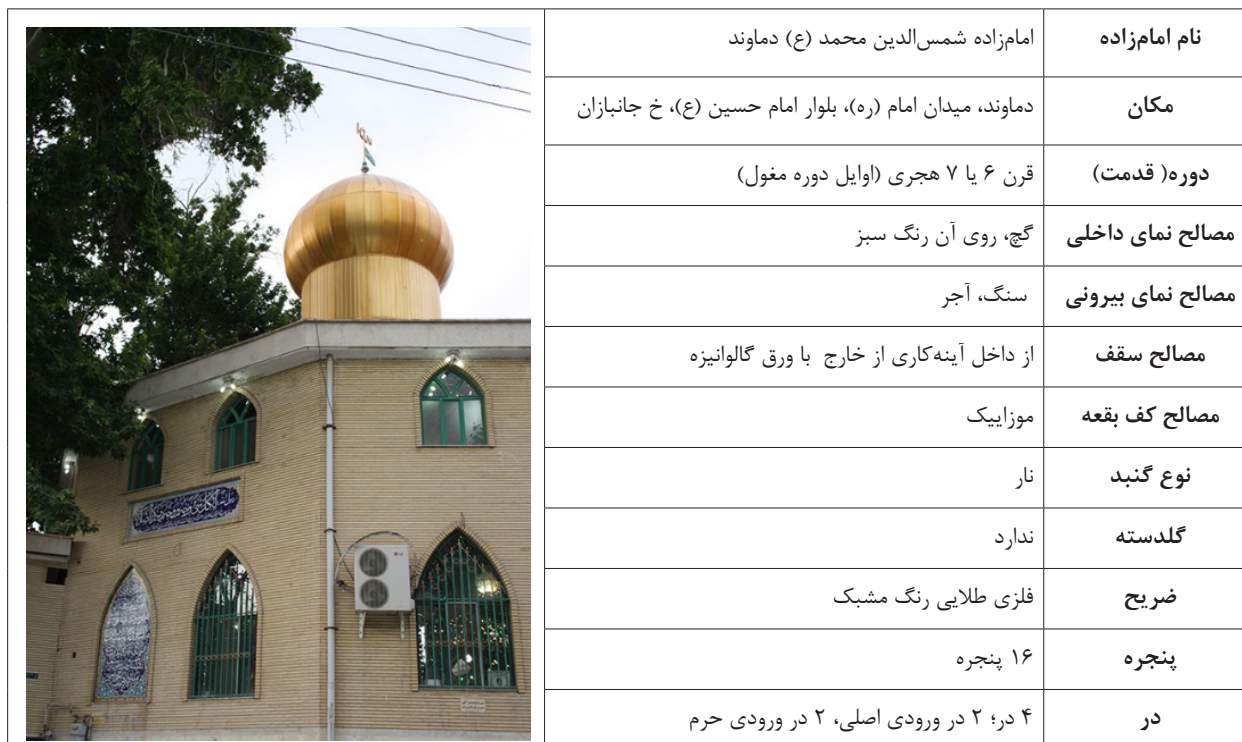 نام امامزاده امامزاده شمس‌الدین محمد (ع) دماوند
مکان دماوند، میدان امام (ره)، بلوار امام حسین (ع)، خ جانبازان
دوره( قدمت) قرن ۶ یا ۷ هجری (اوایل دوره مغول)
مصالح نمای داخلی گچ، روی آن رنگ سبز
مصالح نمای بیرونی سنگ، آجر
مصالح سقف از داخل آینه‌کاری از خارج با ورق گالوانیزه
مصالح کف بقعه موزاییک
نوع گنبد نار
گلدسته ندارد
ضریح فلزی طلایی رنگ مشبک
پنجره ۱۶ پنجره
در ۴ در؛ ۲ در ورودی اصلی، ۲ در ورودی حرم